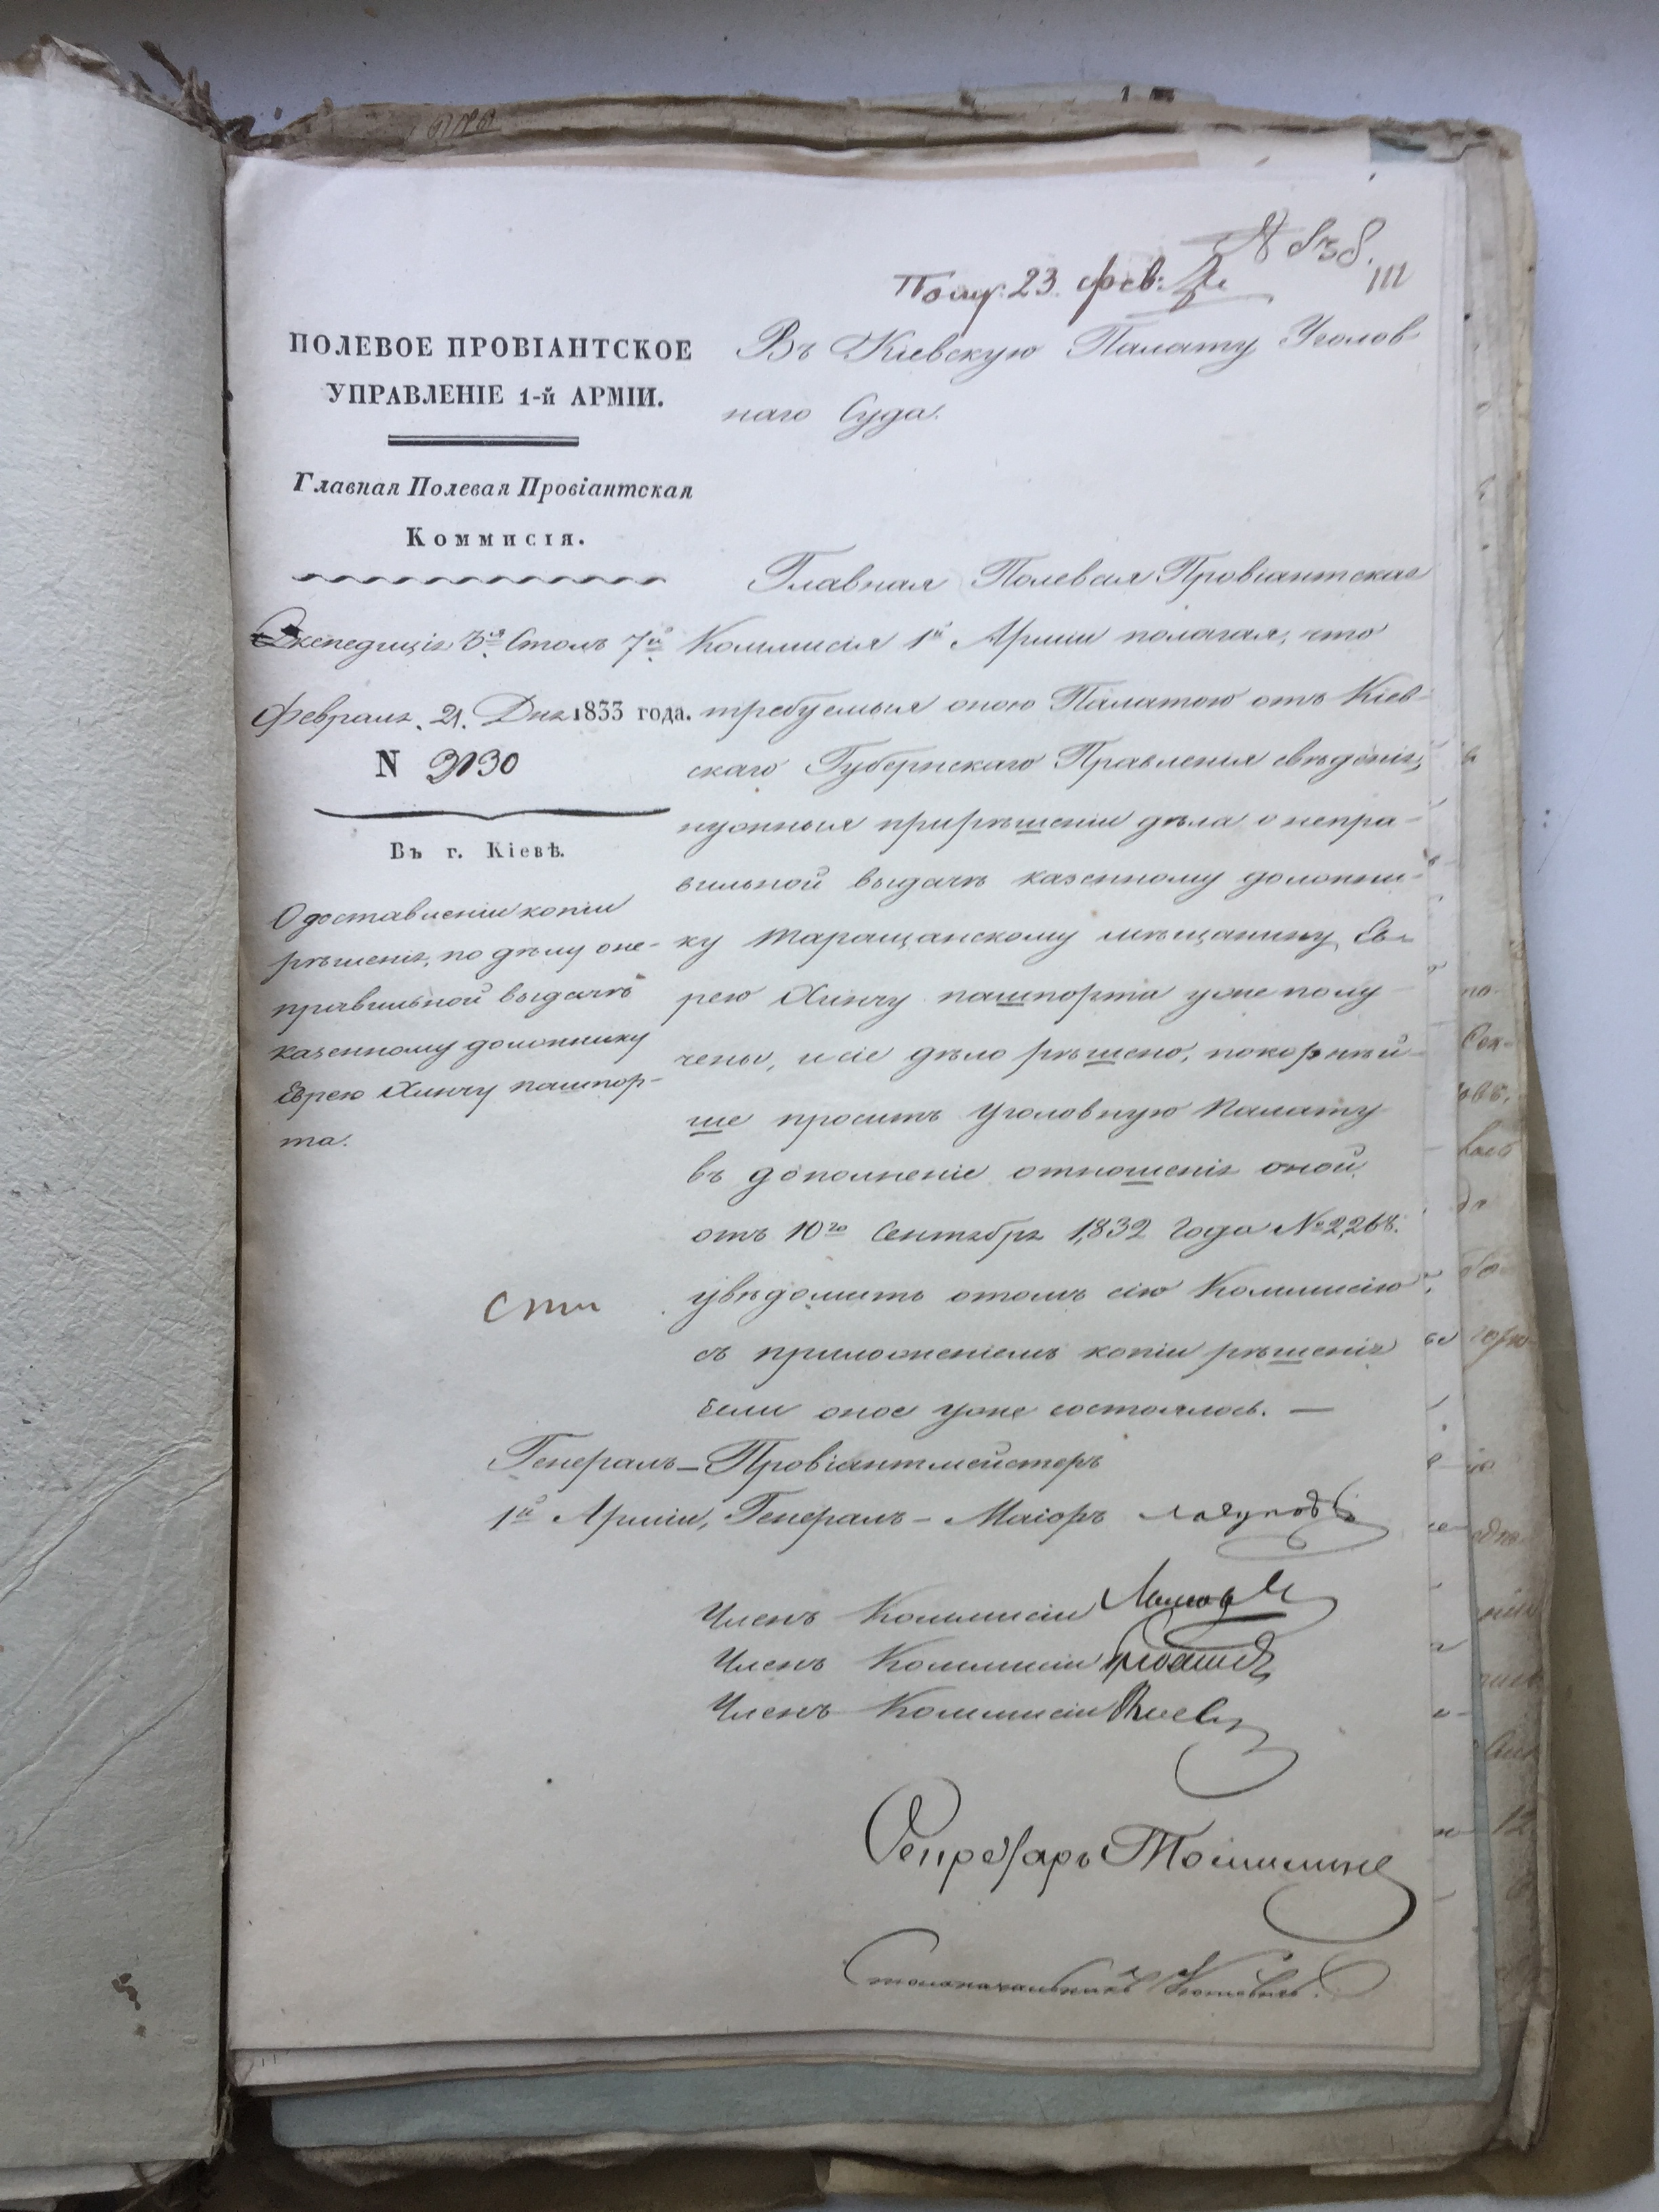 № 838.
Полу: 23. фев:
ПОЛЕВОЕ ПРОВІАНТСКОЕ
УПРАВЛЕНІЕ 1-й АРМІИ.
Главная Полевая Провіантская
Коммисія.
Экспедиція 3я Столъ 7й
Февраля 21. Дня 1833 года.
N 3130
Въ г. Кіевѣ.
О доставленіи копіи
рѣшенія, по дѣлу о не-
правильной выдачѣ
казенному должнику
Еврею Хинчу пашпор-
та.
Въ Кіевскую Палату Уголов
наго Суда.
Главная Полевая Провіантская
Коммисія 1й Арміи полагая, что
требуемыя оною Палатою отъ Кіев-
скаго Губернскаго Правленія свѣденія,
нужныя при рѣшеніи дѣла о непра-
вильной выдачѣ казенному должни-
ку Таращанскому мѣщанину Ев-
рею Хинчу пашпорта уже полу-
чены, и сіе дѣло рѣшено, покорнѣй-
ше проситъ Уголовную Палату
въ дополненіе отношенія оной
отъ 10го Сентября 1832 Года № 2268.
увѣдомить о томъ сію Коммисію
съ приложеніемъ копіи рѣшенія
если оное уже состоялось. —
Генералъ-Провіантмейстеръ
1й Арміи, Генералъ-Маіоръ
Членъ Коммисіи
Членъ Коммисіи
Членъ Коммисіи
Секретарь
Столоначальникъ